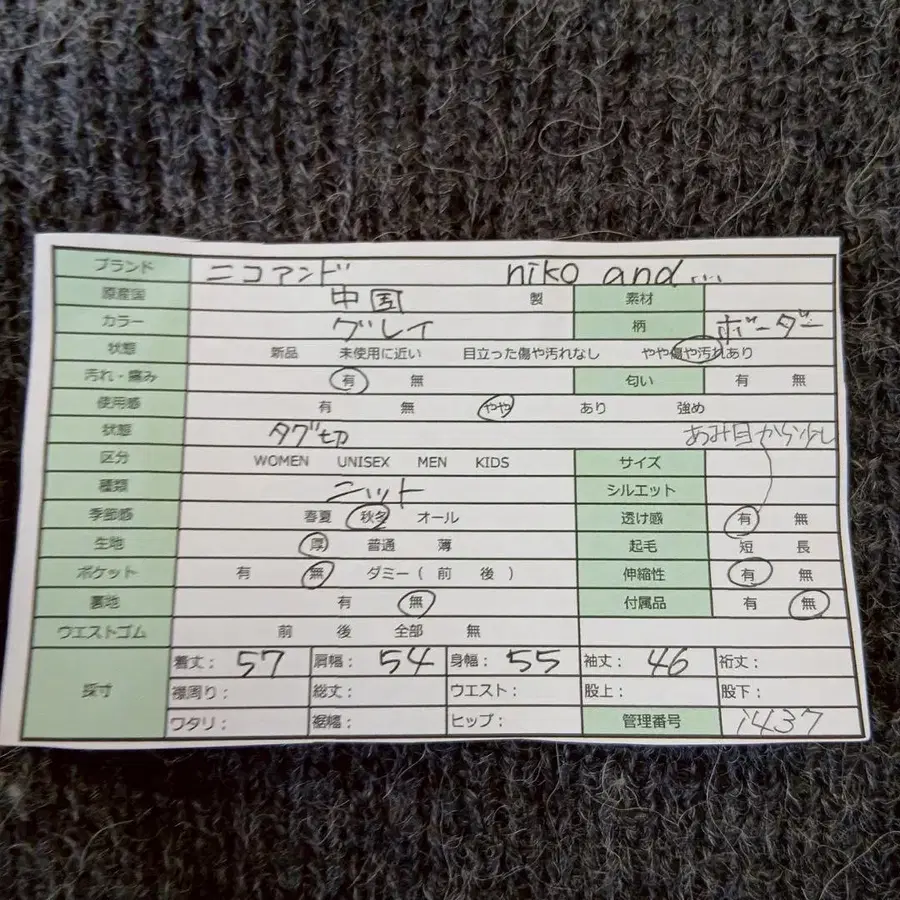 ブランド ニコアンド niko and...
原産国 中国 製 素材
カラー グレイ 柄 ボーダー
状態 新品 未使用に近い 目立った傷や汚れなし やや傷や汚れあり
汚れ・痛み 有 無 匂い 有 無
使用感 有 無 やや あり 強め
状態 タグ切 あみ目から少し
区分 WOMEN UNISEX MEN KIDS サイズ
種類 ニット シルエット
季節感 春夏 秋冬 オール 透け感 有 無
生地 厚 普通 薄 起毛 短 長
ポケット 有 無 ダミー（ 前 後 ） 伸縮性 有 無
裏地 有 無 付属品 有 無
ウエストゴム 前 後 全部 無
採寸 着丈： 57 肩幅： 54 身幅： 55 袖丈： 46 裄丈：
襟周り： 総丈： ウエスト： 股上： 股下：
ワタリ： 裾幅： ヒップ： 管理番号 1437